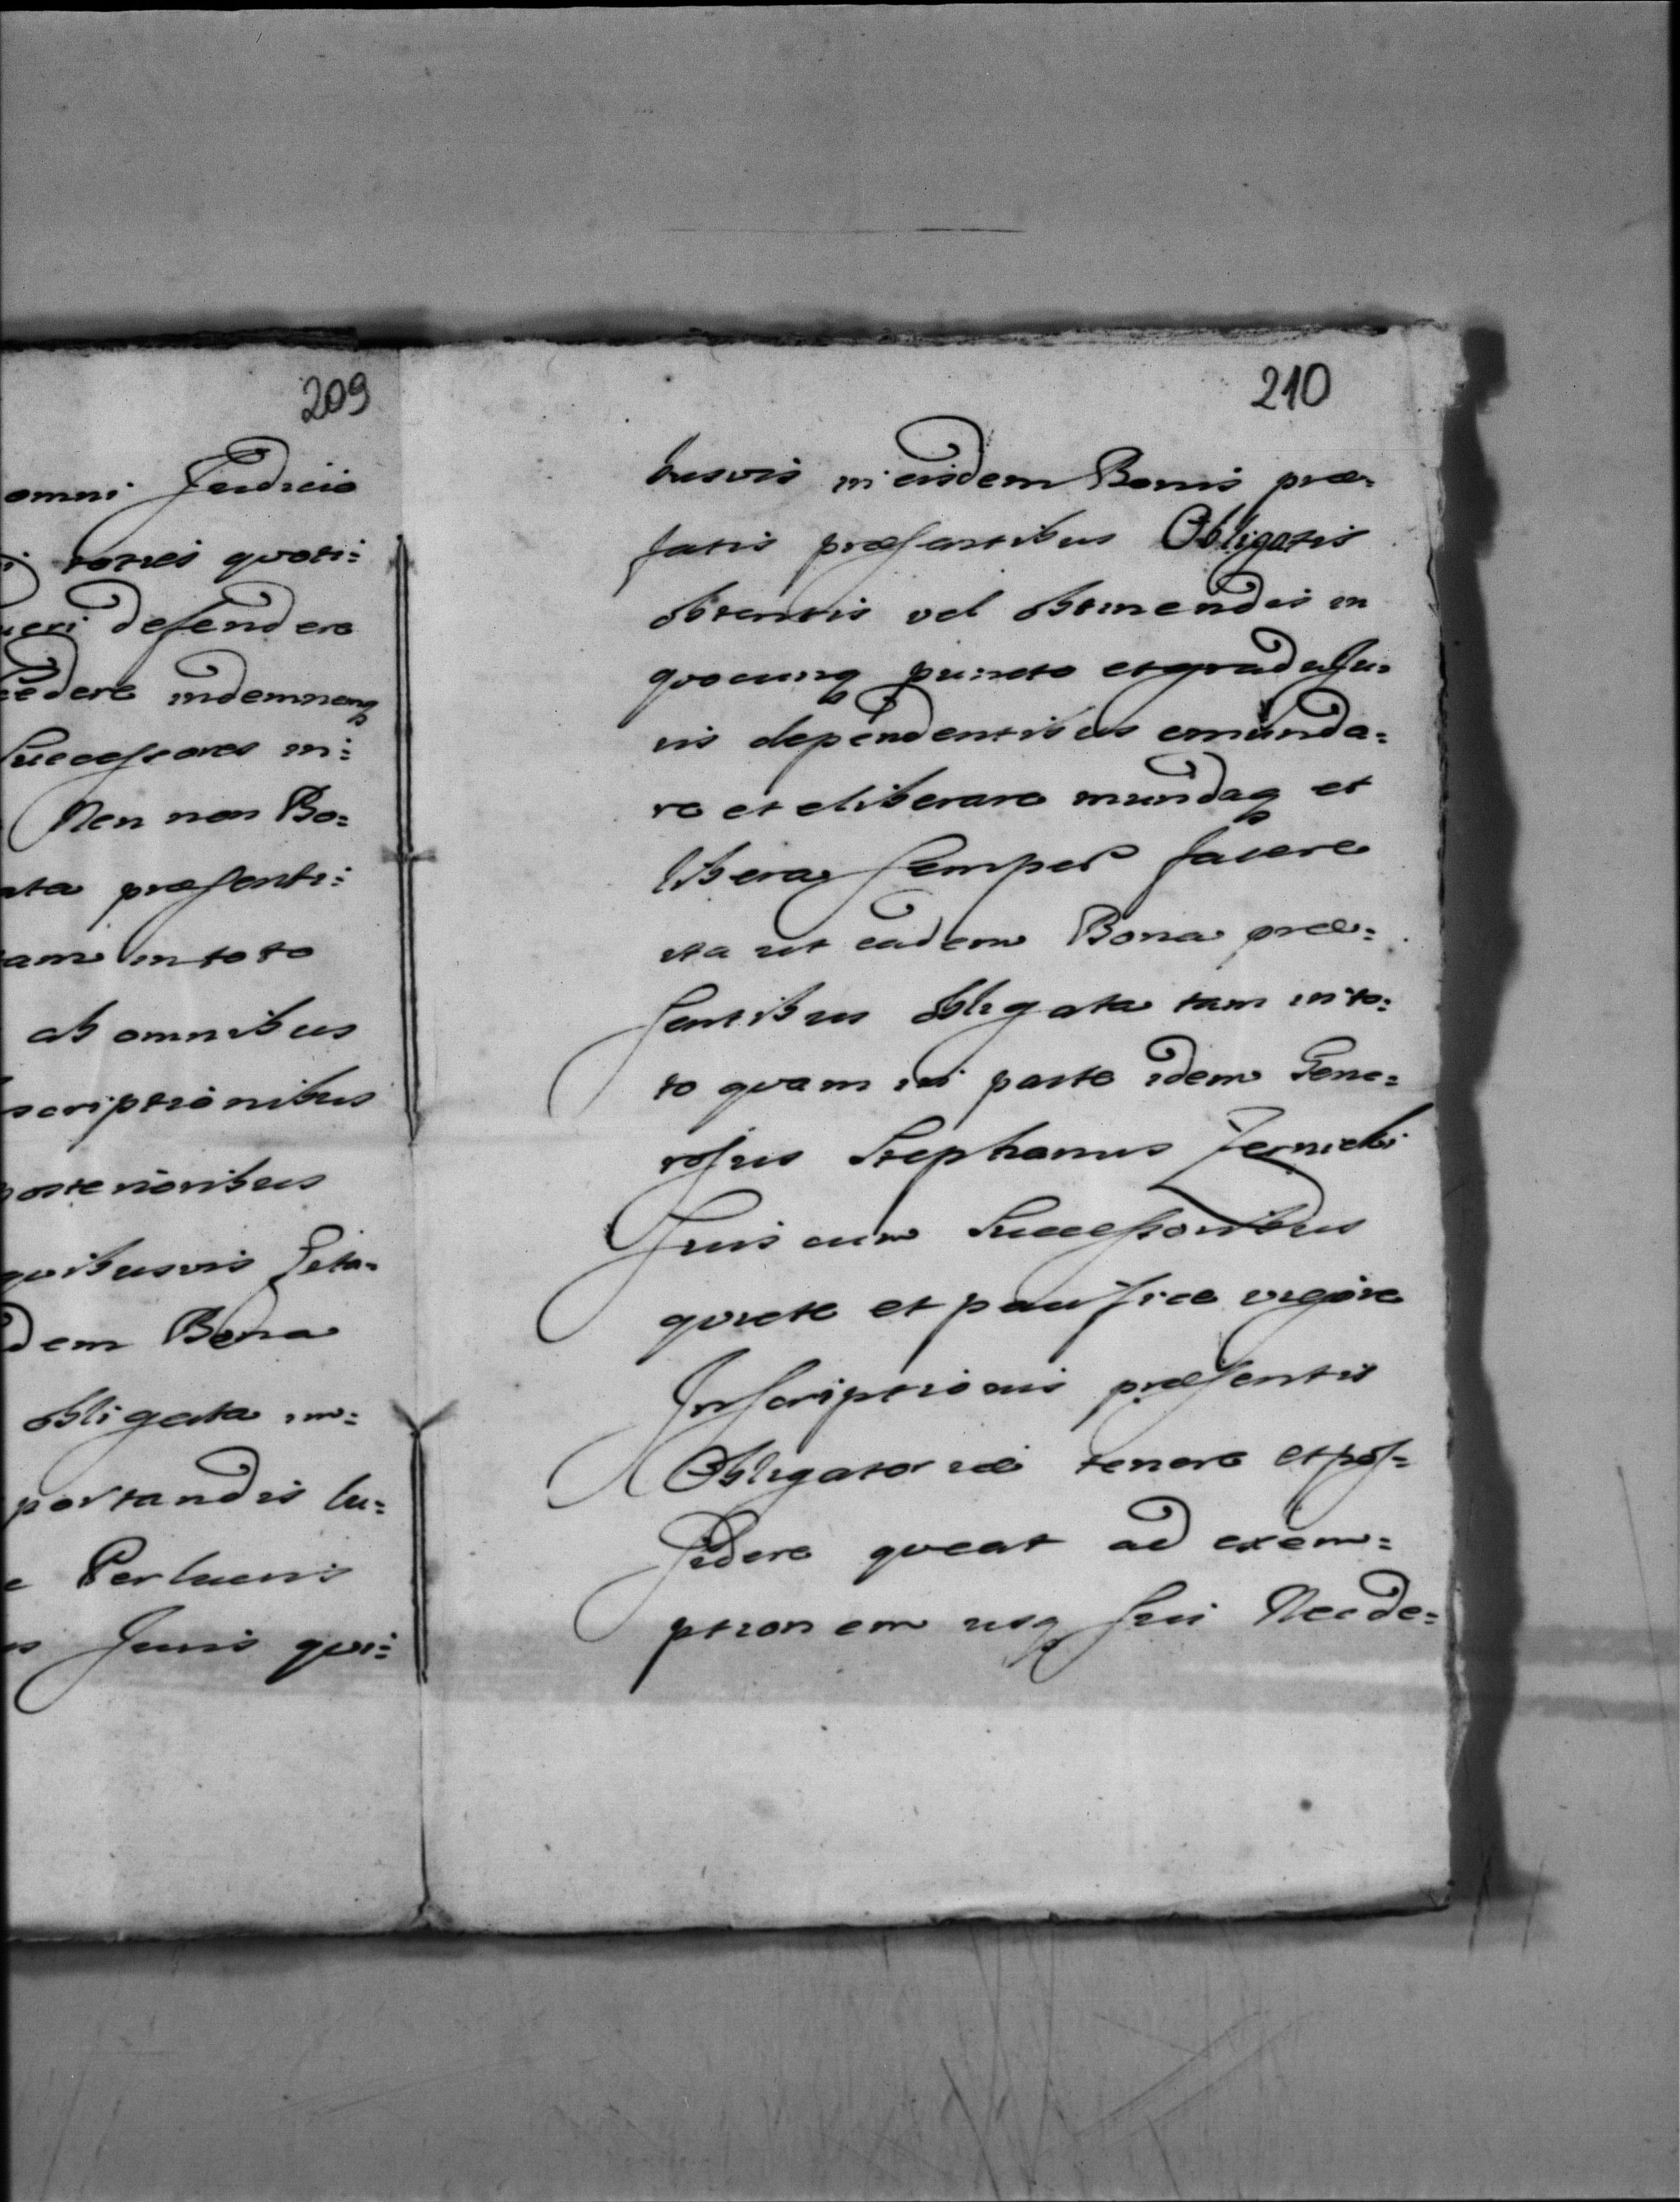 209
omni Judicio
toties quoti:
ueri defendere
cedere indemnemq
Successores in:
Nen non Bo:
ata præsenti:
tam in toto
ab omnibus
scriptionibus
posterioribus
quibusvis
dem Bona
obligata im:
portandis lu:
Perlucris
Juris qui:
210
busvis in eisdem Bonis præ:
fatis præsentibus Obligatis
obtentis vel obtinendis in
quocunq puncto et gradu Ju:
ris dependentibus emunda:
re et eliberare mundaq et
libera semper facere
ita ut eadem Bona præ:
sentibus obligata tam in to:
to quam in parte idem Gene:
rosus Stephanus Zernicki
suis cum Successoribus
quiete et pacifice vigore
Inscriptionis præsentis
Obligatoriæ tenere et pos:
sidere queat ad exem:
ptionem usq sui Nec de: